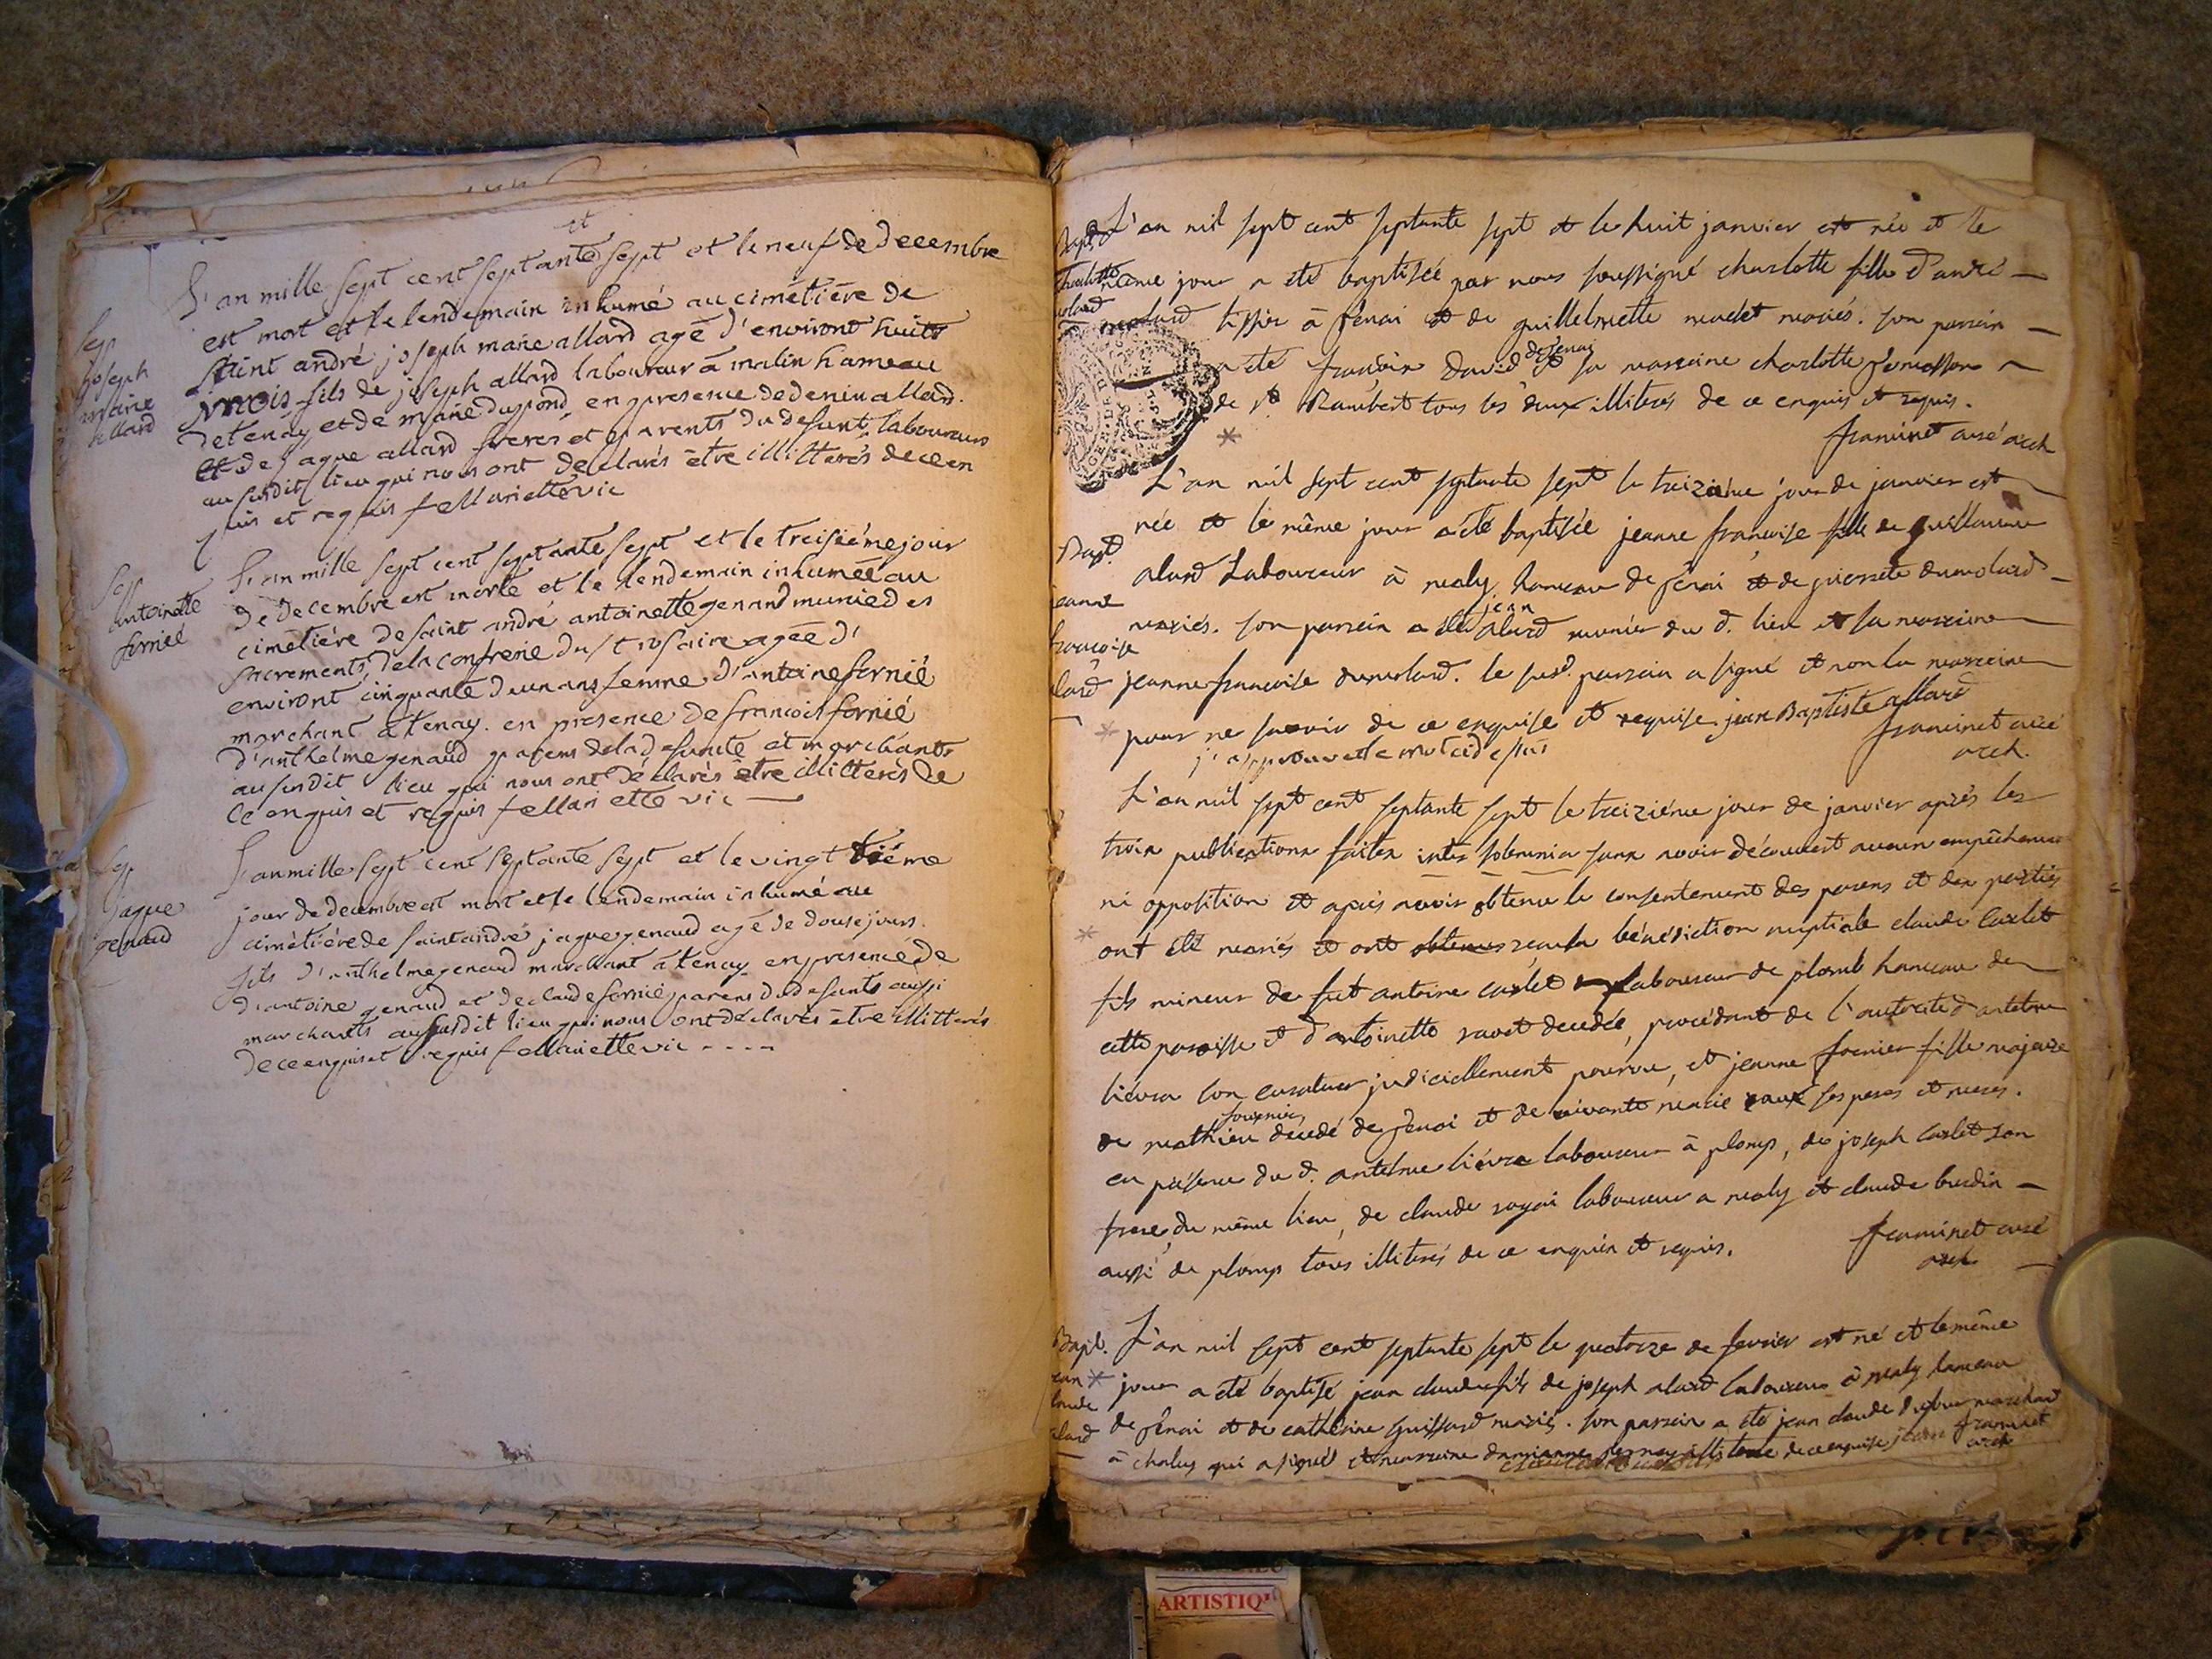 et
L'an mille sept cent septante sept et le neuf de decembre
est mort et le lendemain inhumé au cimétière de
saint andré joseph marie allard agé d'environt huits
mois fils de joseph allard laboureur à malin hameau
de tenay et de marie dupond en presence de denis allard
et de jaque allard freres et parents du defunt, laboureurs
au susdit lieu qui nous ont déclarés être illitterés de ce en
quis et requis fellariette vic
Sep
joseph
marie
allard
L'an mille sept cent septante sept et le treiséème jour
de decembre est morte et le lendemain inhumée au
cimetière de saint andré antoinette genand munie des
sacrements, de la confrerie du st rosaire agée d'
environt cinquante deux ans femme d'antoine fornié
marchant à tenay. en presence de francois fornié
d'anthelme genaud parens de la defunte et marchants
au susdit lieu qui nous ont déclarés être illitterés de
ce enquis et requis fellariette vic
Sep
antoinette
fornié
L'an mille sept cent septante sept et le vingt tième
jour de decembre est mort et le lendemain inhumé au
cimétière de saint andré jaque genaud agé de douse jours
fils d'anthelme genaud marchant à tenay en presence de
d'antoine genaud et de claude fornié parens du defunts aussi
marchants au susdit lieu qui nous ont déclarés être illitterés
de ce enquis et requis fellariette vic ----
Sep
jaque
genaud
L'an mil sept cent septante sept et le huit janvier est née et le
même jour a été baptisée par nous soussigné charlotte fille d'andré
tissier à tenai et de guillelmette mariés. son parrain
a été david de tenai et sa marraine charlotte
de st Rambert tous les deux illiterés de ce enquis et requis.
framinet curé arch
Bapt.
charlotte
L'an mil sept cent septante sept le treizième jour de janvier est
née et le même jour a été baptisée jeanne françoise fille de guillaume
alard Laboureur à maly hameau de tenai et de pierrette dumolard
mariés. son parrain a été jean alard meunier du d. lieu et sa marraine
jeanne françoise dumolard. le susd. parrain a signé et non la marraine
pour ne savoir de ce enquise et requise. jean Baptiste allard
j'approuve le mot cidessus
framinet curé
arch.
Bapt.
jeanne
françoise
alard
L'an mil sept cent septante sept le treizième jour de janvier après les
trois publications faites inter solemnia sans avoir découvert aucun empêchement
ni opposition et après avoir obtenu le consentement des parens et des parties
ont été mariés et ont obtenus recu la bénédiction nuptiale claude carlet
fils mineur de fut antoine carlet laboureur de plomb hameau de
cette paroisse et d'antoinette ravet decedée, procédant de l'autorité d'antelme
liévra son curateur judiciellement pourvu, et jeanne fornier fille majeure
de mathieu fournier décedé de tenai et de vivante marie ses peres et meres.
en présence du d. antelme liévra laboureur à plomp, de joseph carlet son
frere, du même lieu, de claude laboureur a maly et claude burdin
aussi de plomp tous illiterés de ce enquis et requis.
framinet curé
arch
L'an mil sept cent septante sept le quatorze de fevrier est né et le même
jour a été baptisé jean claude fils de joseph alard laboureur à maly hameau
de tenai et de cathérine guissard mariés. son parrain a été jean claude marchand
à chaley qui a signé et marraine de ce enquise framinet
arch
Bapt.
jean
claude
alard
ARTISTIQU